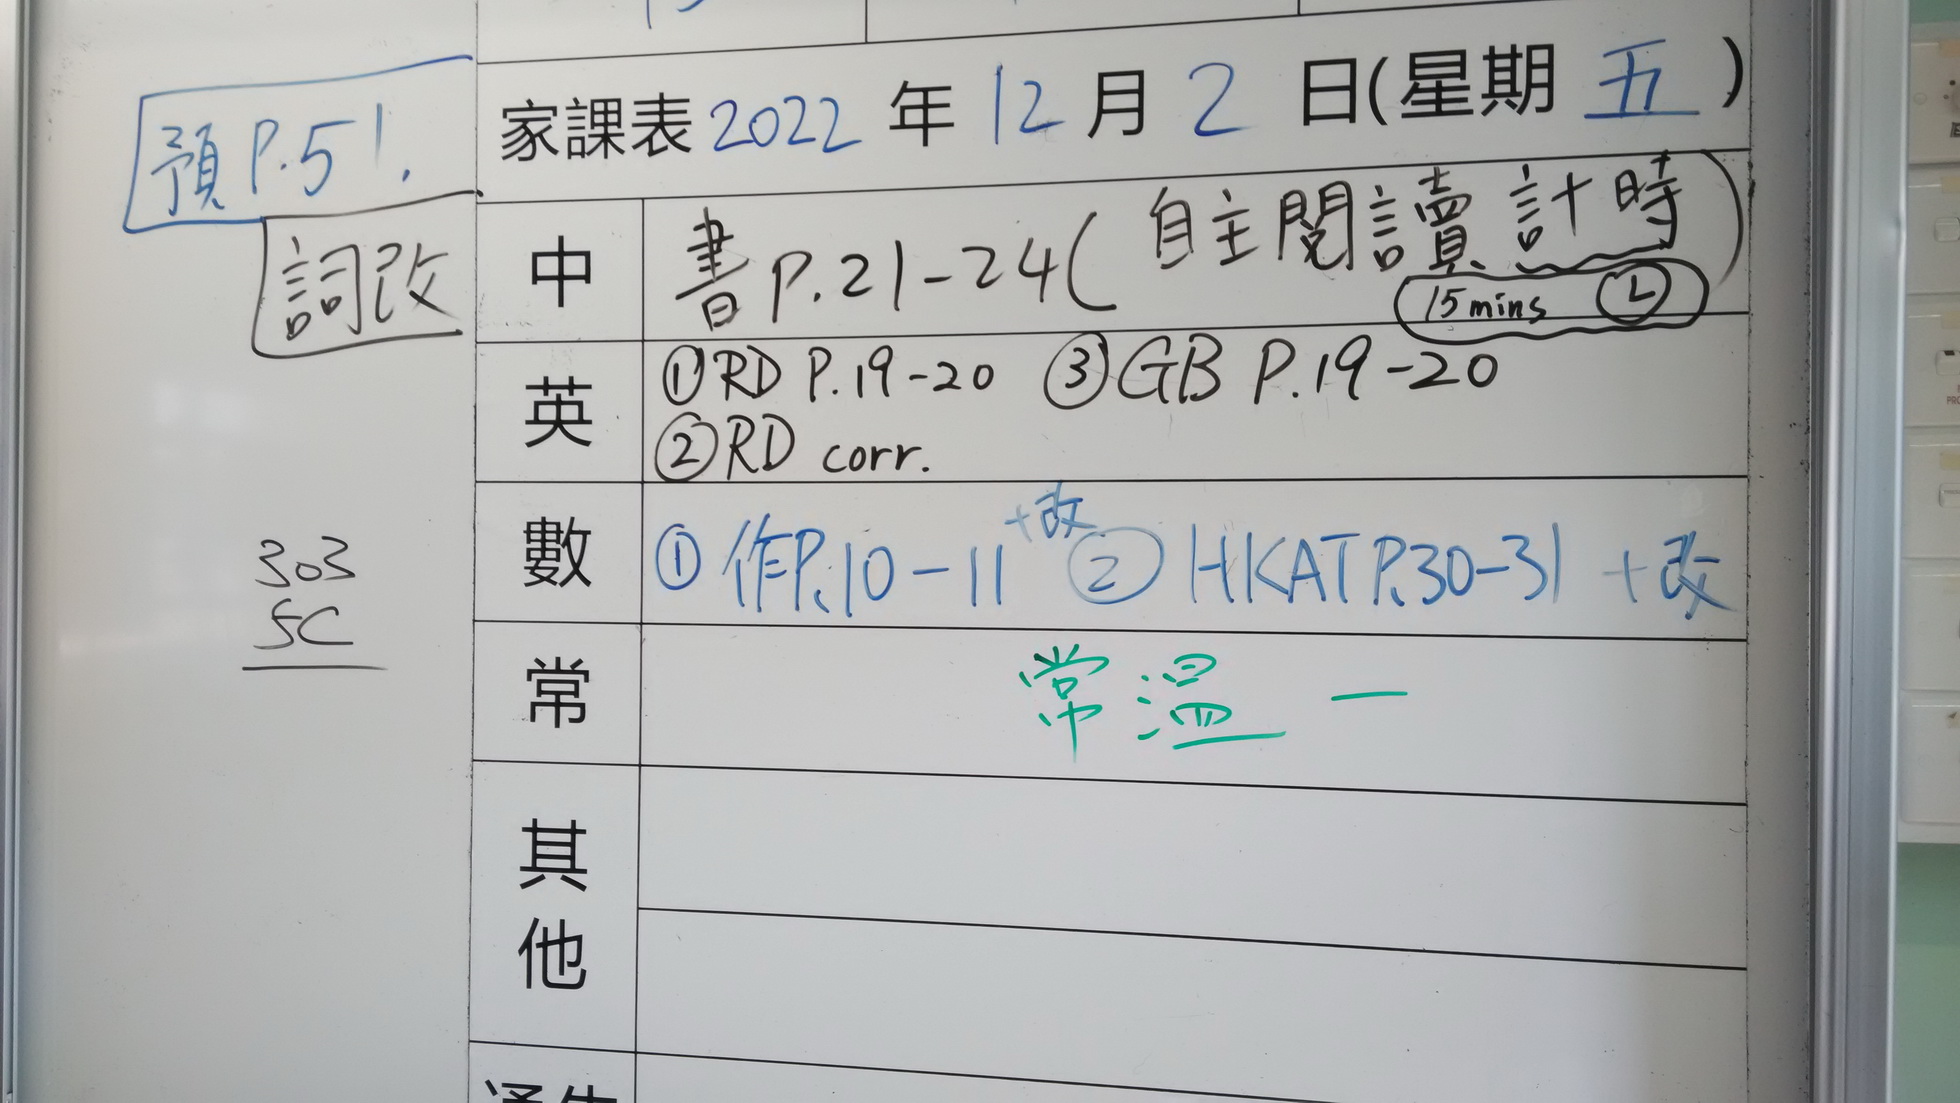 家課表 2022 年 12 月 2 日(星期 五)
預 P.51.
詞改
中 書 P.21-24(自主閱讀計時)
15 mins
英 ①RD P.19-20 ③GB P.19-20
②RD corr.
數 ① 作P.10-11 +改 ② HKAT P.30-31 +改
303
5C
常 常溫一
其他